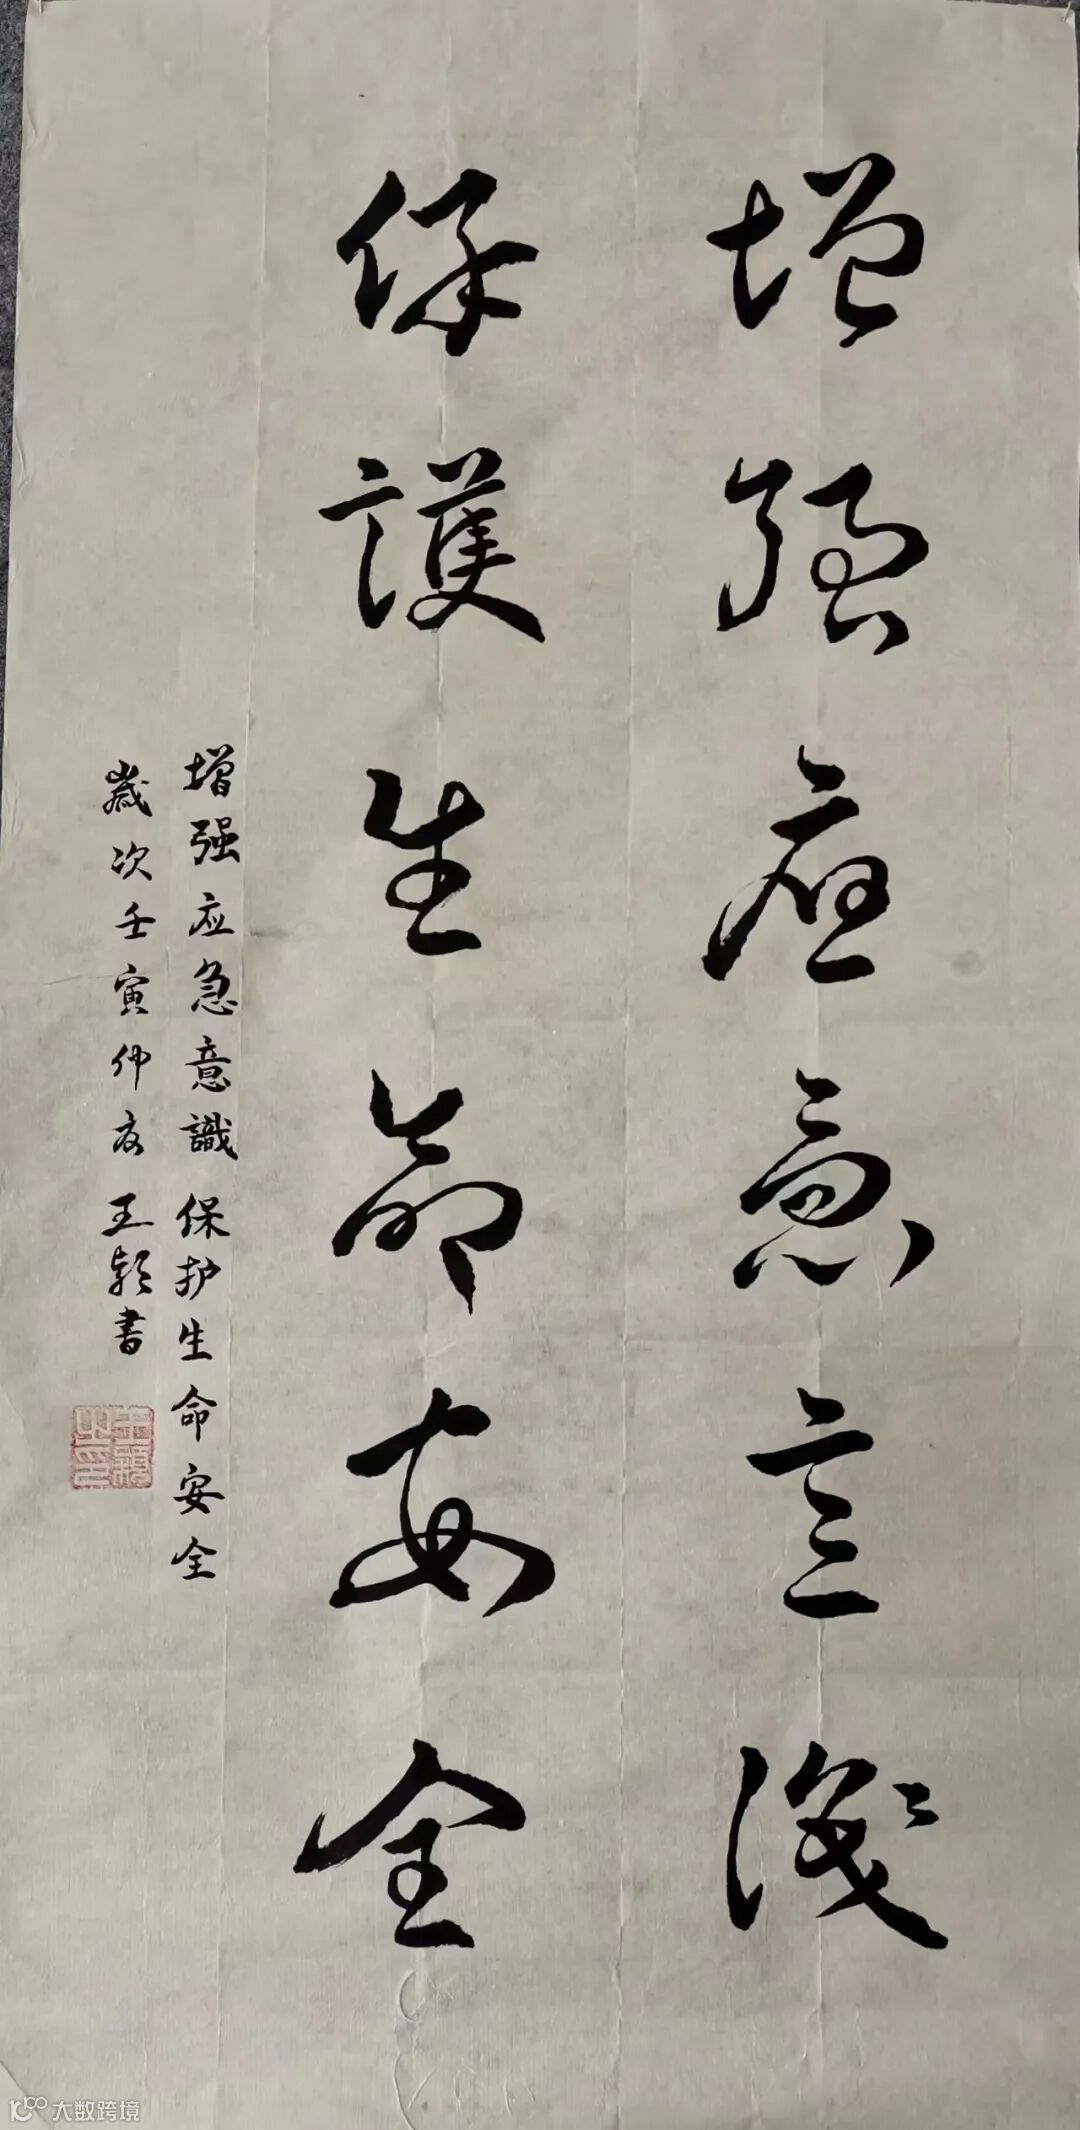 增强应急意识
保護生命安全
增强应急意識 保护生命安全
歲次壬寅仲夏 王颖書
王穎之印
大数跨境